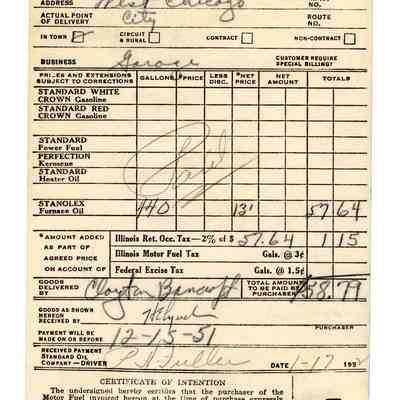 ADDRESS West Chicago
ACTUAL POINT OF DELIVERY City ROUTE NO.
IN TOWN CIRCUIT & RURAL CONTRACT NON-CONTRACT
BUSINESS Garage CUSTOMER REQUIRE SPECIAL BILLING?
PRICES AND EXTENSIONS SUBJECT TO CORRECTIONS GALLONS PRICE LESS DISC. *NET PRICE NET AMOUNT TOTALS
STANDARD WHITE CROWN Gasoline
STANDARD RED CROWN Gasoline
STANDARD Power Fuel
PERFECTION Kerosene
STANDARD Heater Oil
Paid
STANOLEX Furnace Oil 440 131 57 64
*AMOUNT ADDED AS PART OF AGREED PRICE ON ACCOUNT OF
Illinois Ret. Occ. Tax—2% of $ 57.64 1 15
Illinois Motor Fuel Tax Gals. @ 3¢
Federal Excise Tax Gals. @ 1.5¢
GOODS DELIVERED BY Clayton Bancroft TOTAL AMOUNT TO BE PAID BY PURCHASER $58.79
GOODS AS SHOWN HEREON RECEIVED BY
PURCHASER
PAYMENT WILL BE MADE ON OR BEFORE 12-15-51
RECEIVED PAYMENT STANDARD OIL COMPANY—DRIVER Fuller DATE 1-17 1952
CERTIFICATE OF INTENTION
The undersigned hereby certifies that the purchaser of the
Motor Fuel invoiced hereon at the time of purchase expressly